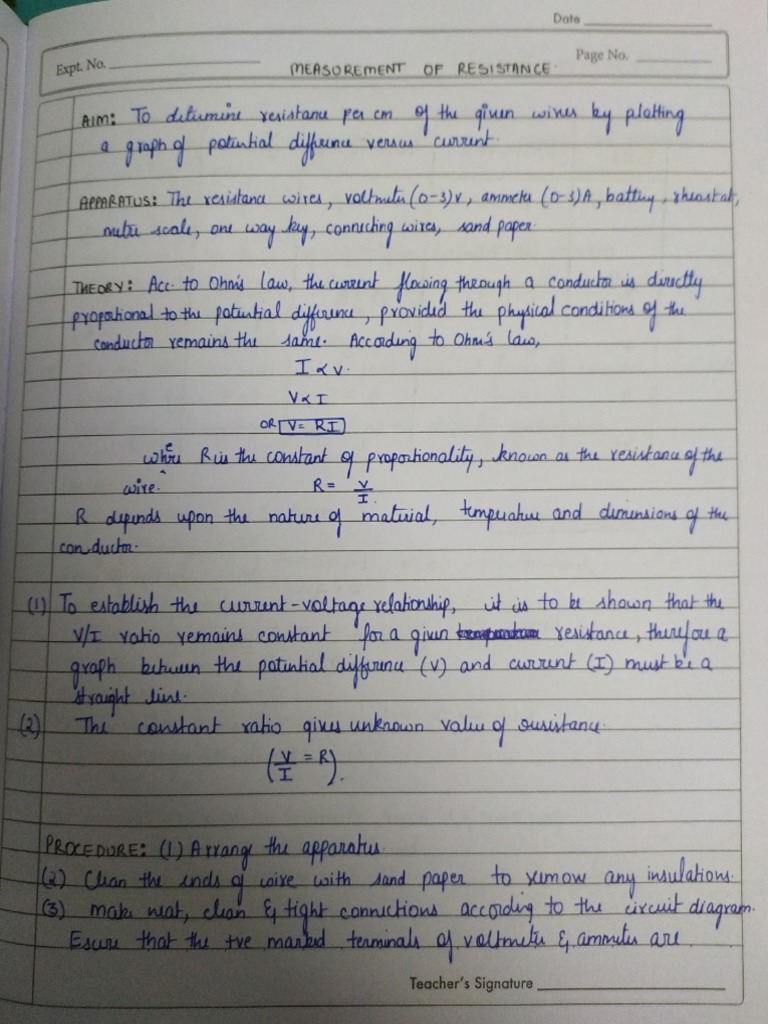 Date
Expt. No.
Page No.
MEASUREMENT OF RESISTANCE.
AIM: To determine resistance per cm of the given wires by plotting
a graph of potential difference versus current.
APPARATUS: The resistance wires, voltmeter (0-3)V, ammeter (0-3)A, battery, rheostat,
metre scale, one way key, connecting wires, sand paper.
THEORY: Acc. to Ohm's law, the current flowing through a conductor is directly
proportional to the potential difference, provided the physical conditions of the
conductor remains the same. According to Ohm's law,
I ∝ V.
V ∝ I
OR V = RI
where R is the constant of proportionality, known as the resistance of the
wire. R = V/I.
R depends upon the nature of material, temperature and dimensions of the
conductor.
(1) To establish the current-voltage relationship, it is to be shown that the
V/I ratio remains constant for a given resistance, therefore a
graph between the potential difference (V) and current (I) must be a
straight line.
(2) The constant ratio gives unknown value of resistance.
(V/I = R).
PROCEDURE: (1) Arrange the apparatus.
(2) Clean the ends of wire with sand paper to remove any insulations.
(3) make neat, clean & tight connections according to the circuit diagram.
Esure that the +ve marked terminals of voltmeter & ammeter are
Teacher's Signature